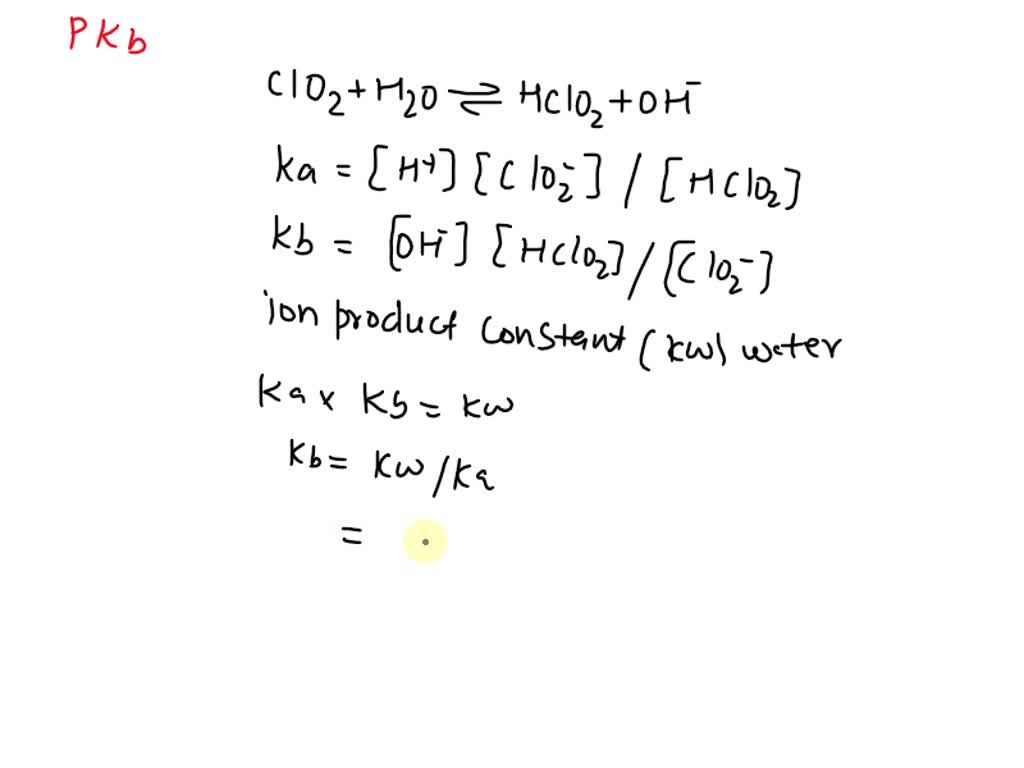 PKb
ClO₂ + H₂O ⇌ HClO₂ + OH⁻
Ka = [H⁺] [ClO₂⁻] / [HClO₂]
Kb = [OH⁻] [HClO₂] / [ClO₂⁻]
ion product constant (kw) water
Ka x Kb = Kw
Kb = Kw / Ka
=